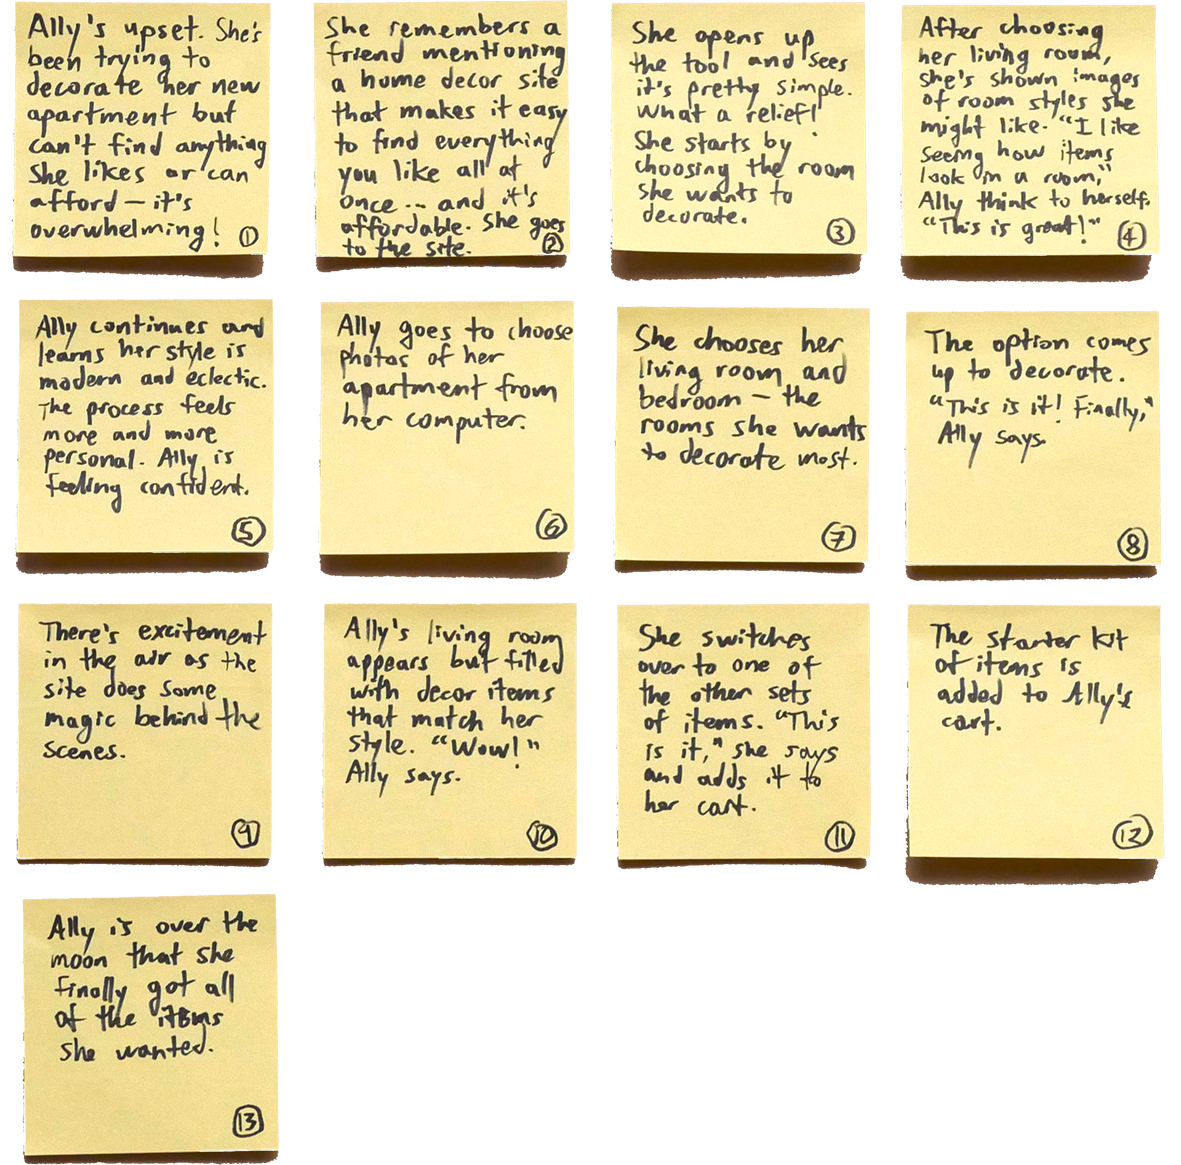 Ally's upset. She's
been trying to
decorate her new
apartment but
can't find anything
she likes or can
afford – it's
overwhelming!
1
She remembers a
friend mentioning
a home decor site
that makes it easy
to find everything
you like all at
once... and it's
affordable. She goes
to the site.
2
She opens up
the tool and sees
it's pretty simple.
What a relief!
She starts by
choosing the room
she wants to
decorate.
3
After choosing
her living room,
she's shown images
of room styles she
might like. "I like
seeing how items
look in a room,"
Ally think to herself.
"This is great!"
4
Ally continues and
learns her style is
modern and eclectic.
The process feels
more and more
personal. Ally is
feeling confident.
5
Ally goes to choose
photos of her
apartment from
her computer.
6
She chooses her
living room and
bedroom – the
rooms she wants
to decorate most.
7
The option comes
up to decorate.
"This is it! Finally,"
Ally says.
8
There's excitement
in the air as the
site does some
magic behind the
scenes.
9
Ally's living room
appears but filled
with decor items
that match her
style. "Wow!"
Ally says.
10
She switches
over to one of
the other sets
of items. "This
is it," she says
and adds it to
her cart.
11
The starter kit
of items is
added to Ally's
cart.
12
Ally is over the
moon that she
finally got all
of the items
she wanted.
13